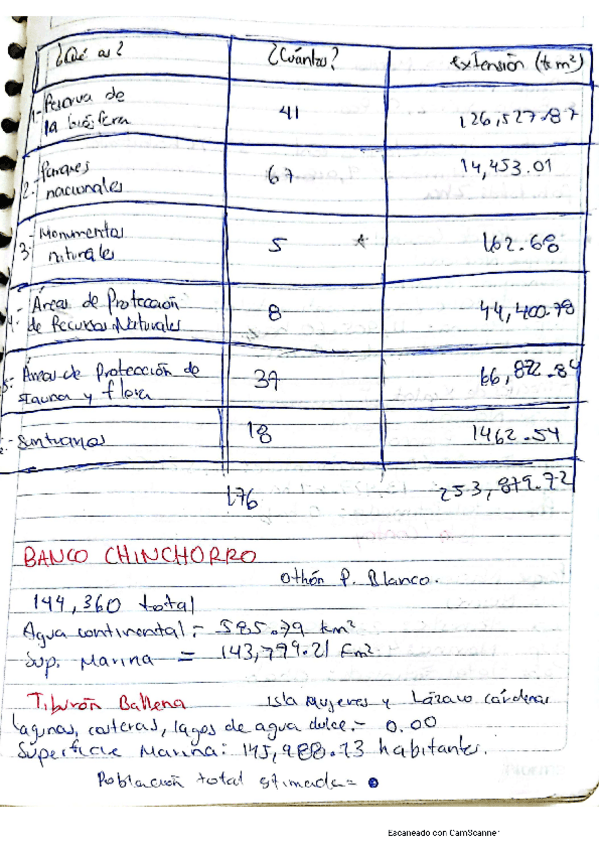 ¿Qué es? ¿Cuántos? extensión (km²)
1.- Reserva de la biósfera 41 126,527.87
2.- Parques nacionales 67 14,453.01
3.- Monumentos naturales 5 162.68
4.- Áreas de Protección de Recursos Naturales 8 44,400.78
5.- Áreas de Protección de fauna y flora 37 66,872.84
Santuarios 18 1462.54
176 253,879.72
BANCO CHINCHORRO
Othón P. Blanco.
144,360 total
Agua continental = 585.79 km²
Sup. Marina = 143,799.21 km²
Tiburón Ballena isla Mujeres y Lázaro cárdenas
lagunas, costeras, lagos de agua dulce.- 0.00
Superficie Marina: 145,988.13 habitantes.
Población total estimada= 0
Escaneado con CamScanner